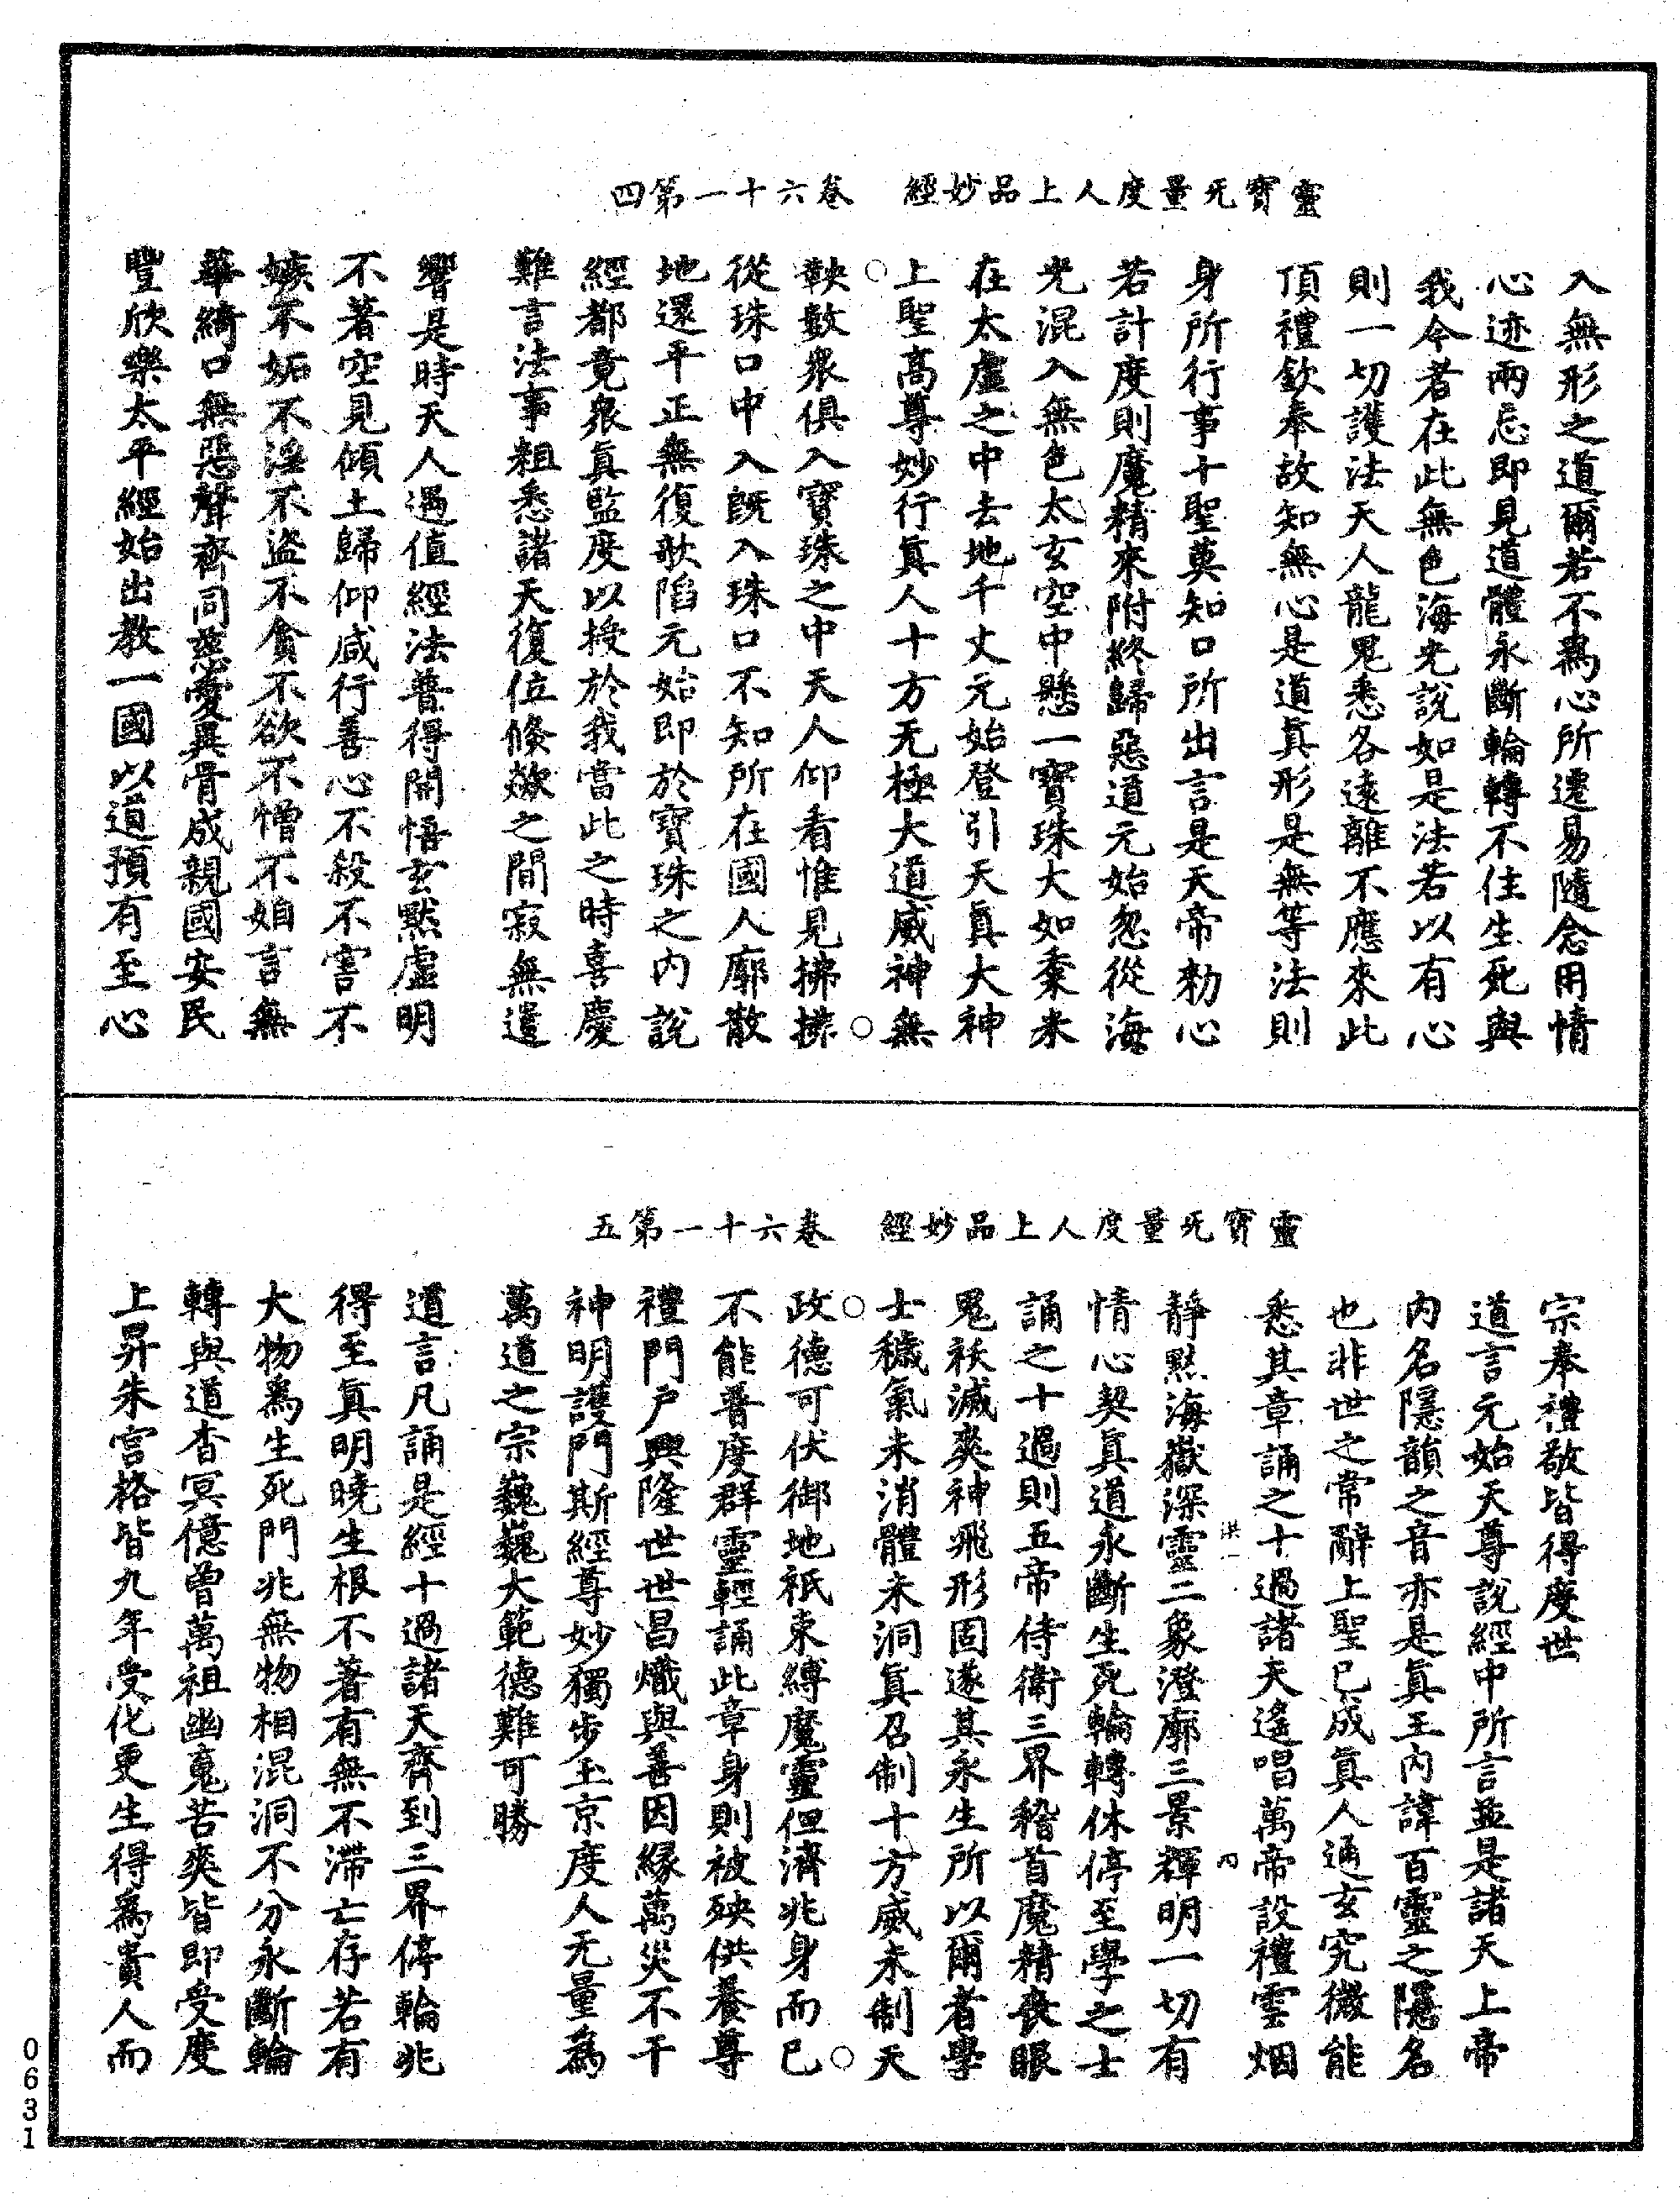 靈寶无量度人上品妙經　卷六十一第四
入無形之道爾若不爲心所遷易隨念用情
心迹兩忘即見道體永斷輪轉不住生死與
我今者在此無色海光說如是法若以有心
則一切護法天人龍鬼悉各遠離不應來此
頂禮欽奉故知無心是道真形是無等法則
身所行事十聖莫知口所出言是天帝勑心
若計度則魔精來附終歸惡道元始忽從海
光混入無色太玄空中懸一寶珠大如黍米
在太虛之中去地千丈元始登引天真大神
上聖高尊妙行真人十方无極大道威神無
○鞅數衆俱入寶珠之中天人仰看惟見拂拂○
從珠口中入既入珠口不知所在國人廓散
地還平正無復欹陷元始即於寶珠之內說
經都竟衆真監度以授於我當此之時喜慶
難言法事粗悉諸天復位倏歘之間寂無遺
響是時天人過值經法普得開悟玄黙虛明
不著空見傾土歸仰咸行善心不殺不害不
嫉不妬不淫不盜不貪不欲不憎不㛊言無
華綺口無惡聲齊同慈愛異骨成親國安民
豐欣樂太平經始出教一國以道預有至心
靈寶无量度人上品妙經　卷六十一第五
宗奉禮敬皆得度世
道言元始天尊說經中所言並是諸天上帝
內名隱韻之音亦是真王內諱百靈之隱名
也非世之常辭上聖已成真人通玄究微能
悉其章誦之十過諸天遙唱萬帝設禮雲烟
洪一　內
靜黙海嶽深靈二象澄廓三景輝明一切有
情心契真道永斷生死輪轉休停至學之士
誦之十過則五帝侍衛三界稽首魔精喪眼
鬼祅滅爽神飛形固遂其永生所以爾者學
士穢氣未消體未洞真召制十方威未制天
○政德可伏御地祇束縛魔靈但濟兆身而已○
不能普度群靈輕誦此章身則被殃供養尊
禮門戶興隆世世昌熾與善因緣萬災不干
神明護門斯經尊妙獨步玉京度人无量爲
萬道之宗巍巍大範德難可勝
道言凡誦是經十過諸天齊到三界停輪兆
得至真明曉生根不著有無不滯亡存若有
大物爲生死門兆無物相混洞不分永斷輪
轉與道杳冥億曾萬祖幽䰟苦爽皆即受度
上昇朱宮格皆九年受化更生得爲貴人而
0631